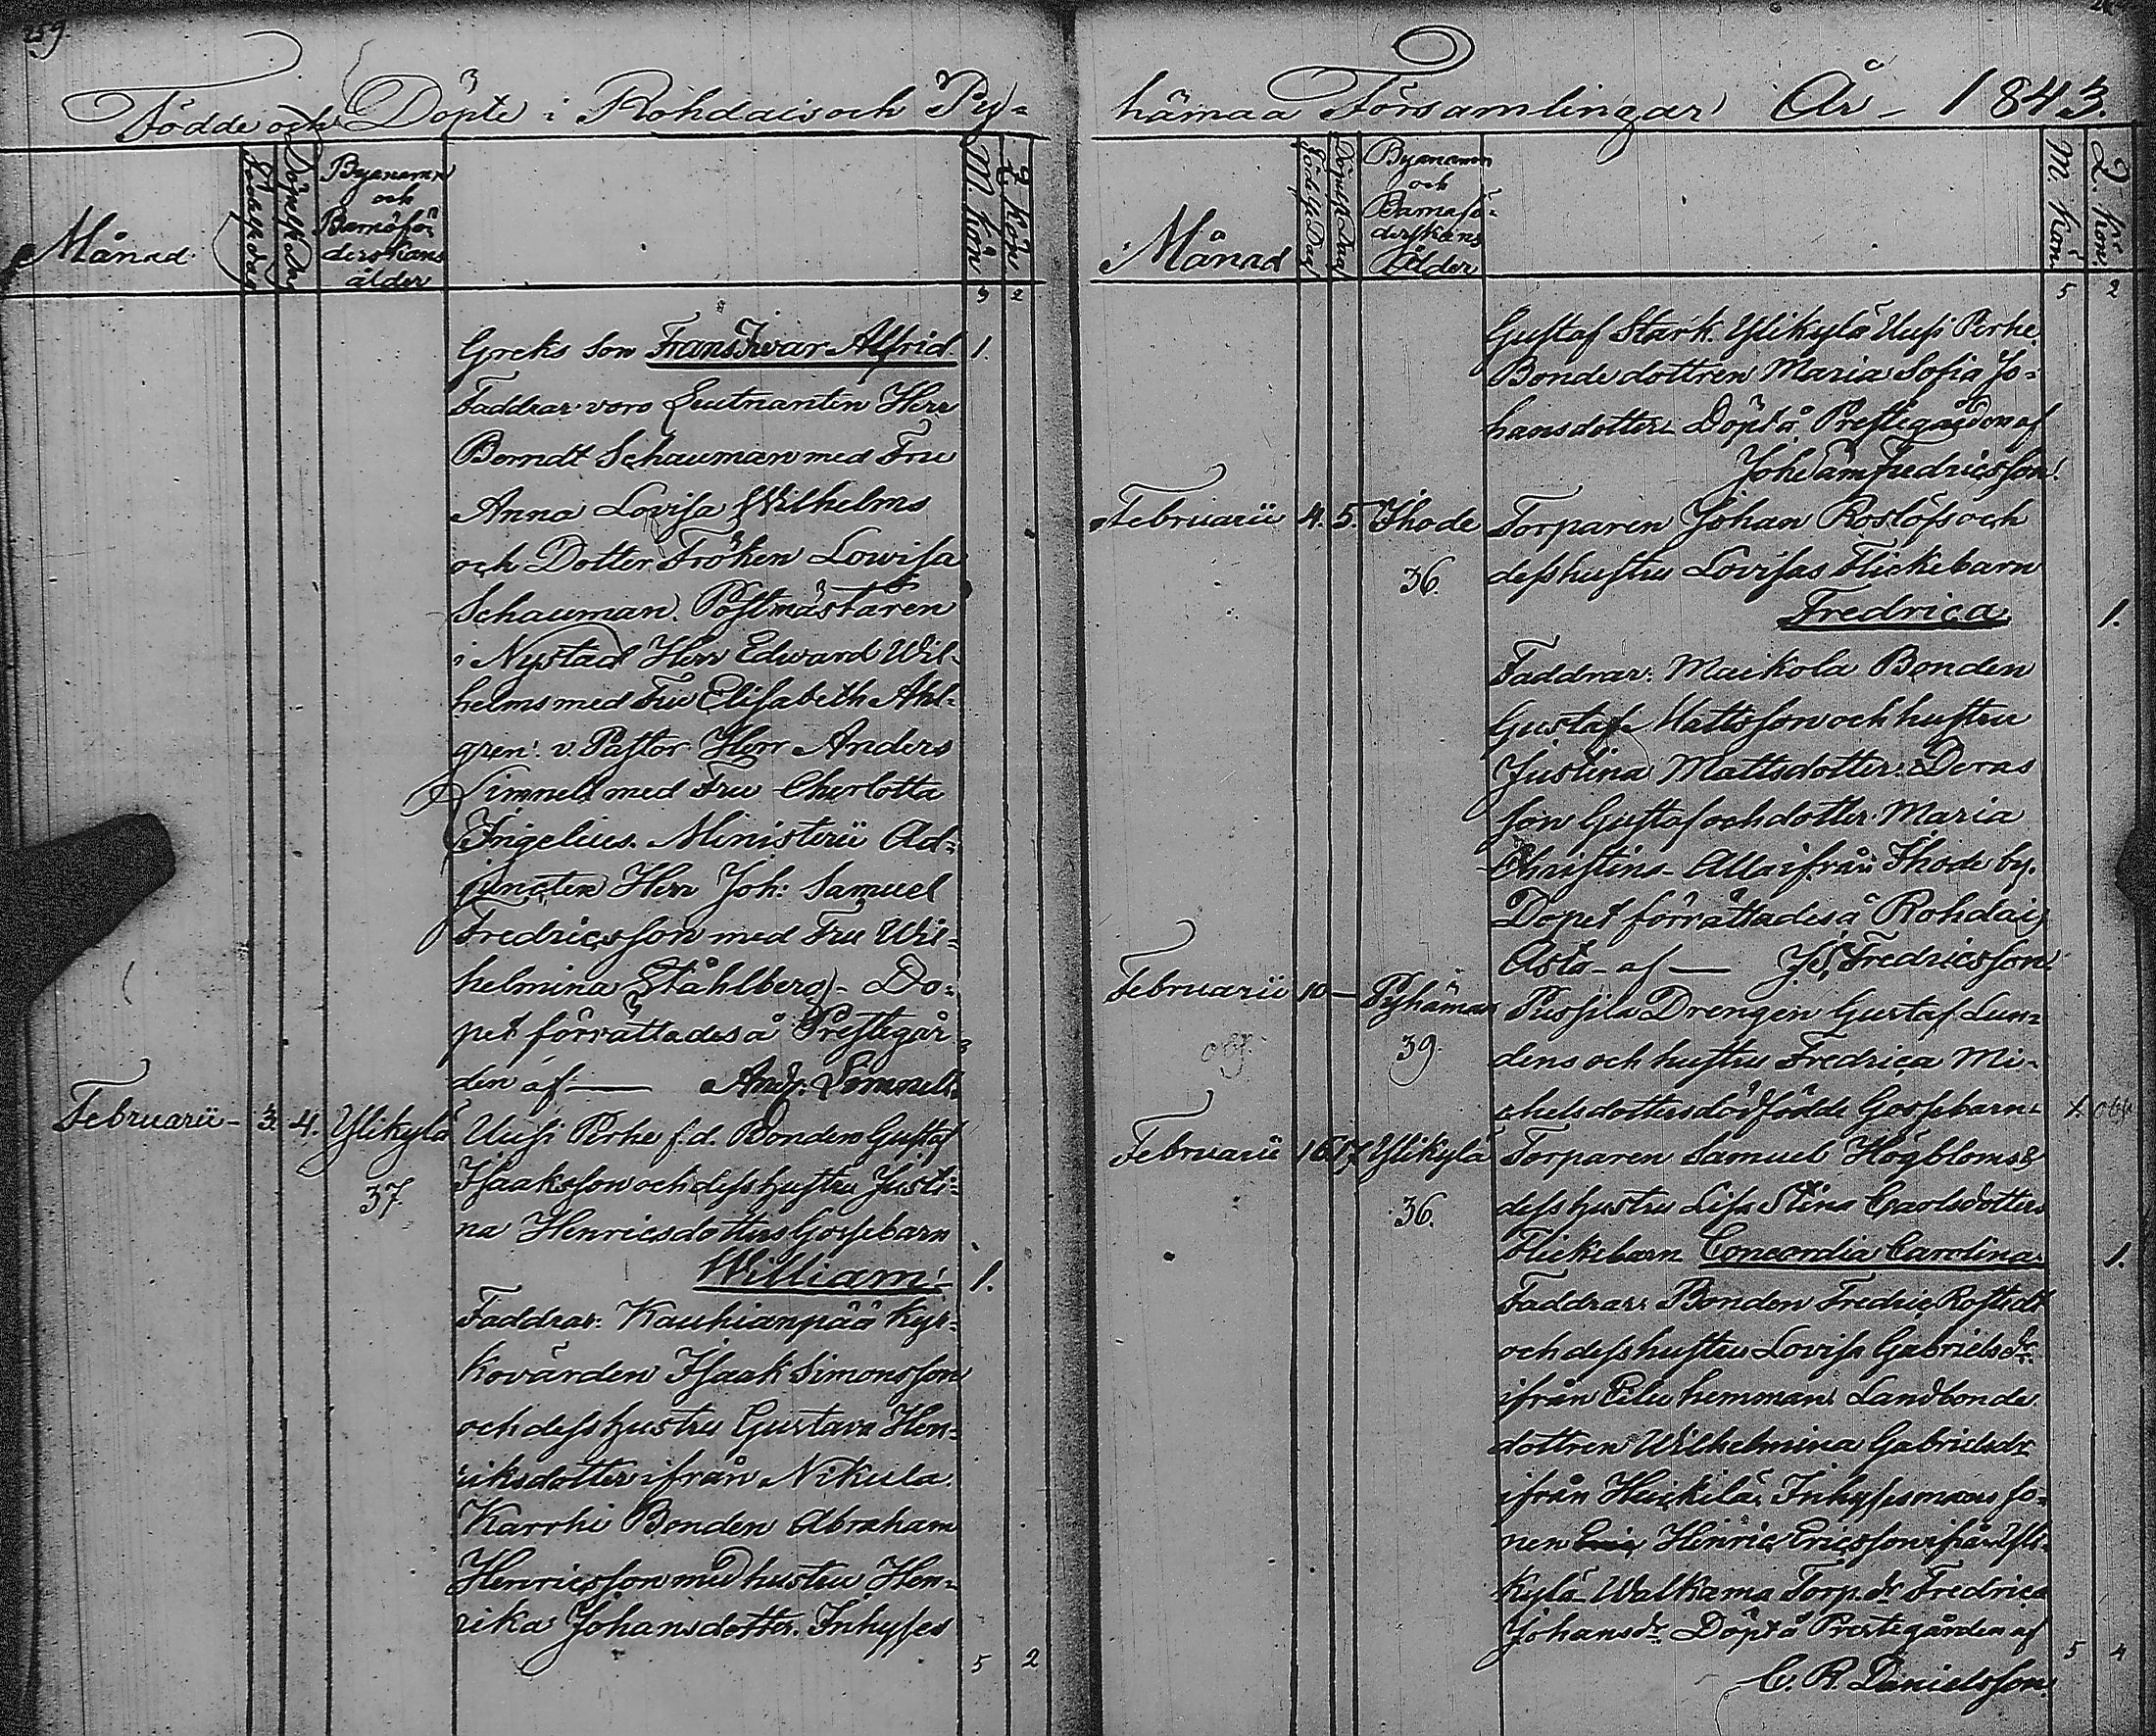 259.
Födde och Döpte i Rohdais och Py=
Månad
Födelsedag
Döpelsedag
Byanamn
och
Barnsfö=
derskans
ålder
M. kön
Q. kön
3 2
Greks son Frans Ivar Alfrid 1.
Faddrar voro Leutnanten Herr
Berndt Schauman med Fru
Anna Lovisa Wilhelms
och Dotter Fröken Lowisa
Schauman. Postmästaren
i Nystad Herr Edward Wil=
helms med Fru Elisabeth Ahl=
gren: v. Pastor Herr Anders
Limnell med Fru Charlotta
Ingelius. Ministerii Ad=
juncten Herr Joh: Samuel
Fredricsson med Fru Wil=
helmina Ståhlberg - Do=
pet förrättades å Prestegår=
den af — And. Limnell.
Februarii - 3. 4. Ylikylä Uusi Perhe f.d. Bonden Gustaf
37. Isaaksson och dess hustru Justi=
na Henricsdotters Gossebarn
William - 1.
Faddrar: Kauhianpää kyr=
kovärden Isaak Simonsson
och dess hustru Gustava Hen=
riksdotter ifrån Nikula.
Karrhi Bonden Abraham
Henricsson med hustru Hen=
rika Johansdotter. Inhyses
5 2
hämaa Församlingar År - 1843.
Månad
Födelse Dag
Döpelse Dag
Byanamn
och
Barnafö=
derskans
Ålder
M. kön
Q. kön
5 2
Gustaf Stark. Ylikylä Uusi Perhe
Bonde dottren Maria Sofia Jo=
hansdotter Döpt å Prestegården af
Joh: Sam Fredricsson.
Februarii 4. 5. Ihode Torparen Johan Roslöfs och
36. dess hustru Lovisas Flickebarn
Fredrica 1.
Faddrar: Maikola Bonden
Gustaf Mattsson och hustru
Justina Mattsdotter. Deras
son Gustaf och dotter Maria
Christina - Alla ifrån Ihode by.
Dopet förrättades å Rohdais
Asto - af — J. S. Fredricsson.
Februarii 10 — Pyhämaa Pussila Drengen Gustaf Lun=
39. dens och hustru Fredrica Mi=
chelsdotters dödfödde Gossebarn. X
Februarii 16 17 Ylikylä Torparen Samuel Högbloms &
36. dess hustru Lisa Stina Carlsdotters
Flickebarn Concordia Carolina. 1.
Faddrar: Bonden Fredric Rostedt
och dess hustru Lovisa Gabrielsdr
ifrån Eilu hemman. Landbonde
dottren Wilhelmina Gabrielsdr
ifrån Heickilä, Inhysesmans so=
nen Henric Ericsson ifrån Yli=
kylä. Walkama Torp. dr Fredrica
Johansdr. Döpt å Prestegården af
C. R. Danielsson.
5 4